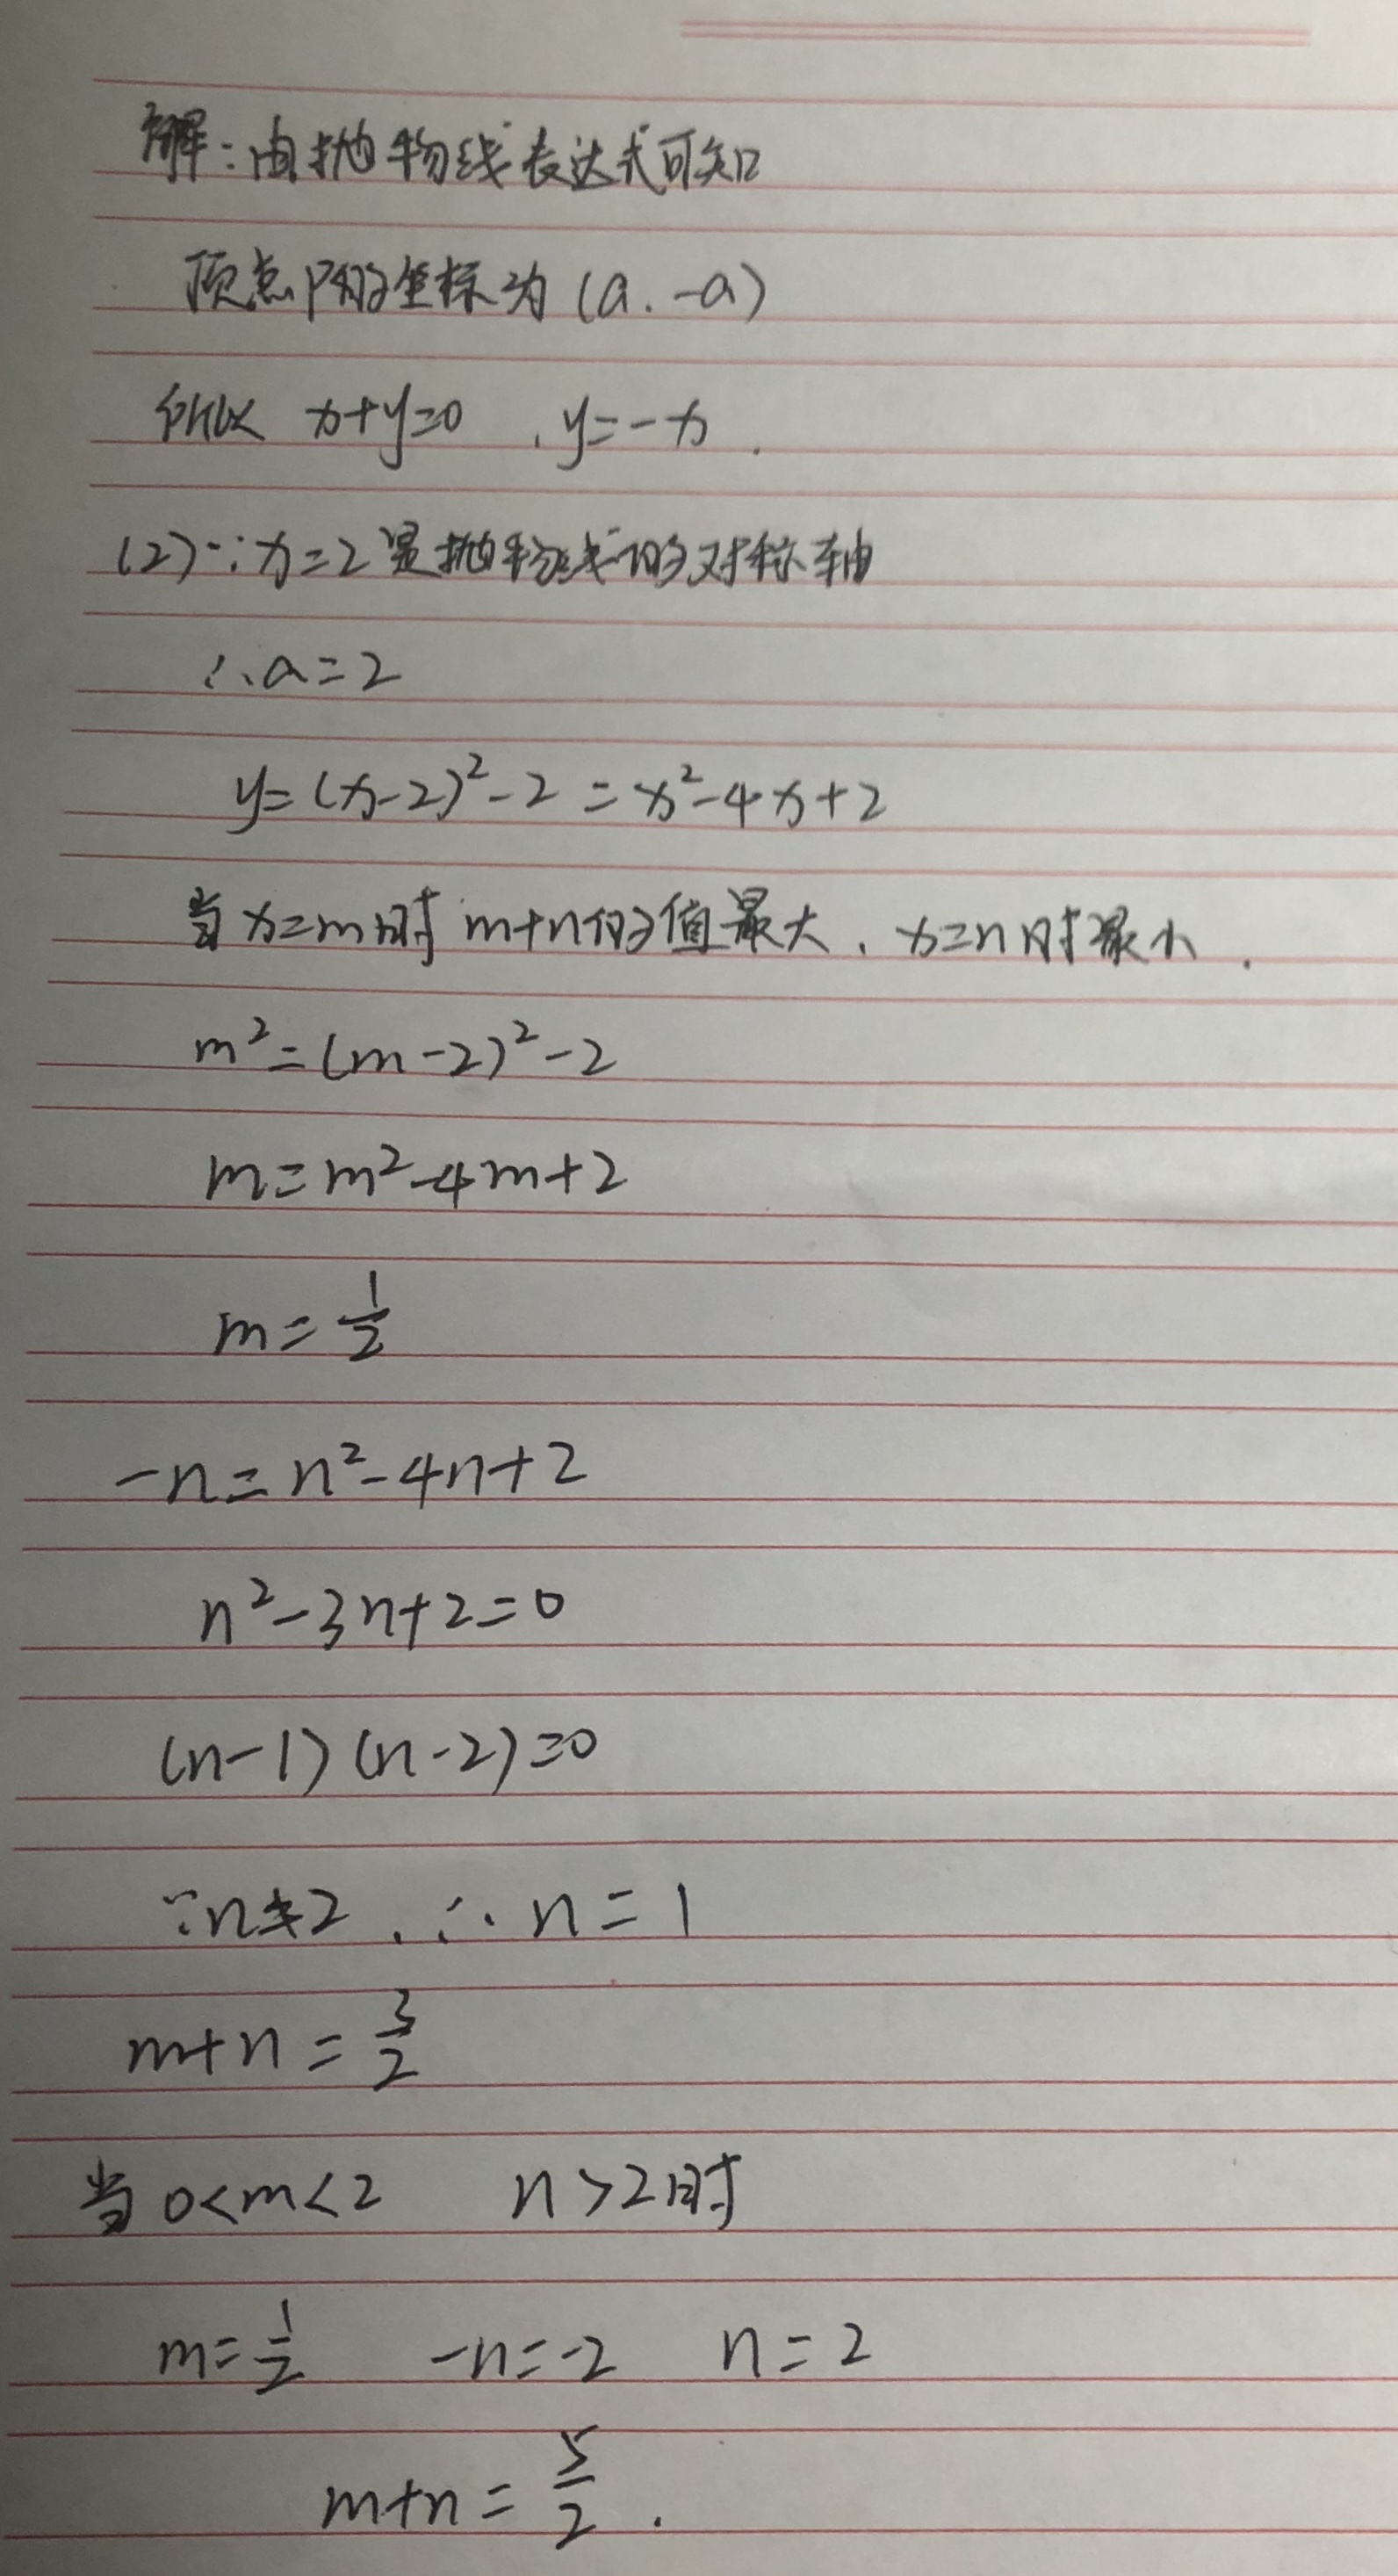 解:由抛物线表达式可知
顶点P的坐标为(a.-a)
所以 x+y=0 , y=-x.
(2)∵x=2是抛物线的对称轴
∴a=2
y=(x-2)²-2=x²-4x+2
当x=m时m+n的值最大、x=n时最小.
m²=(m-2)²-2
m=m²-4m+2
m=1/2
-n=n²-4n+2
n²-3n+2=0
(n-1)(n-2)=0
∵n≠2 . ∴n=1
m+n=3/2
当0<m<2 n>2时
m=1/2 -n=-2 n=2
m+n=5/2.